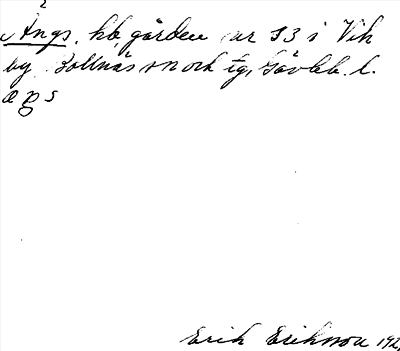 Ångs, hb, gården nr 13 i Vik
by Bollnäs sn och tg, Gävleb. l.
Erik Eriksson 192